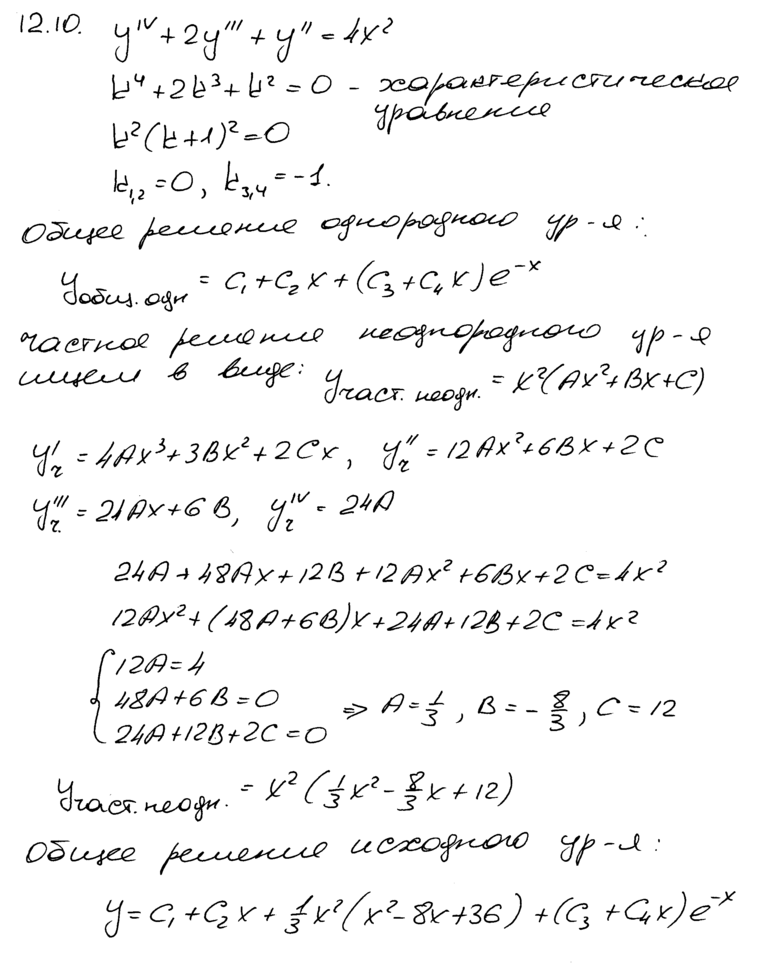 12.10. y^IV + 2y''' + y'' = 4x²
k⁴ + 2k³ + k² = 0 - характеристическое
уравнение
k²(k+1)² = 0
k₁,₂ = 0, k₃,₄ = -1.
Общее решение однородного ур-я:
y общ. одн = C₁ + C₂x + (C₃ + C₄x)e^-x
частное решение неоднородного ур-я
ищем в виде: y част. неодн. = x²(Ax² + Bx + C)
y'ч = 4Ax³ + 3Bx² + 2Cx, y''ч = 12Ax² + 6Bx + 2C
y'''ч. = 24Ax + 6B, y^IV ч = 24A
24A + 48Ax + 12B + 12Ax² + 6Bx + 2C = 4x²
12Ax² + (48A + 6B)x + 24A + 12B + 2C = 4x²
{ 12A = 4
48A + 6B = 0 ⇒ A = 1/3, B = -8/3, C = 12
24A + 12B + 2C = 0
y част. неодн. = x²(1/3x² - 8/3x + 12)
Общее решение исходного ур-я:
y = C₁ + C₂x + 1/3x²(x² - 8x + 36) + (C₃ + C₄x)e^-x